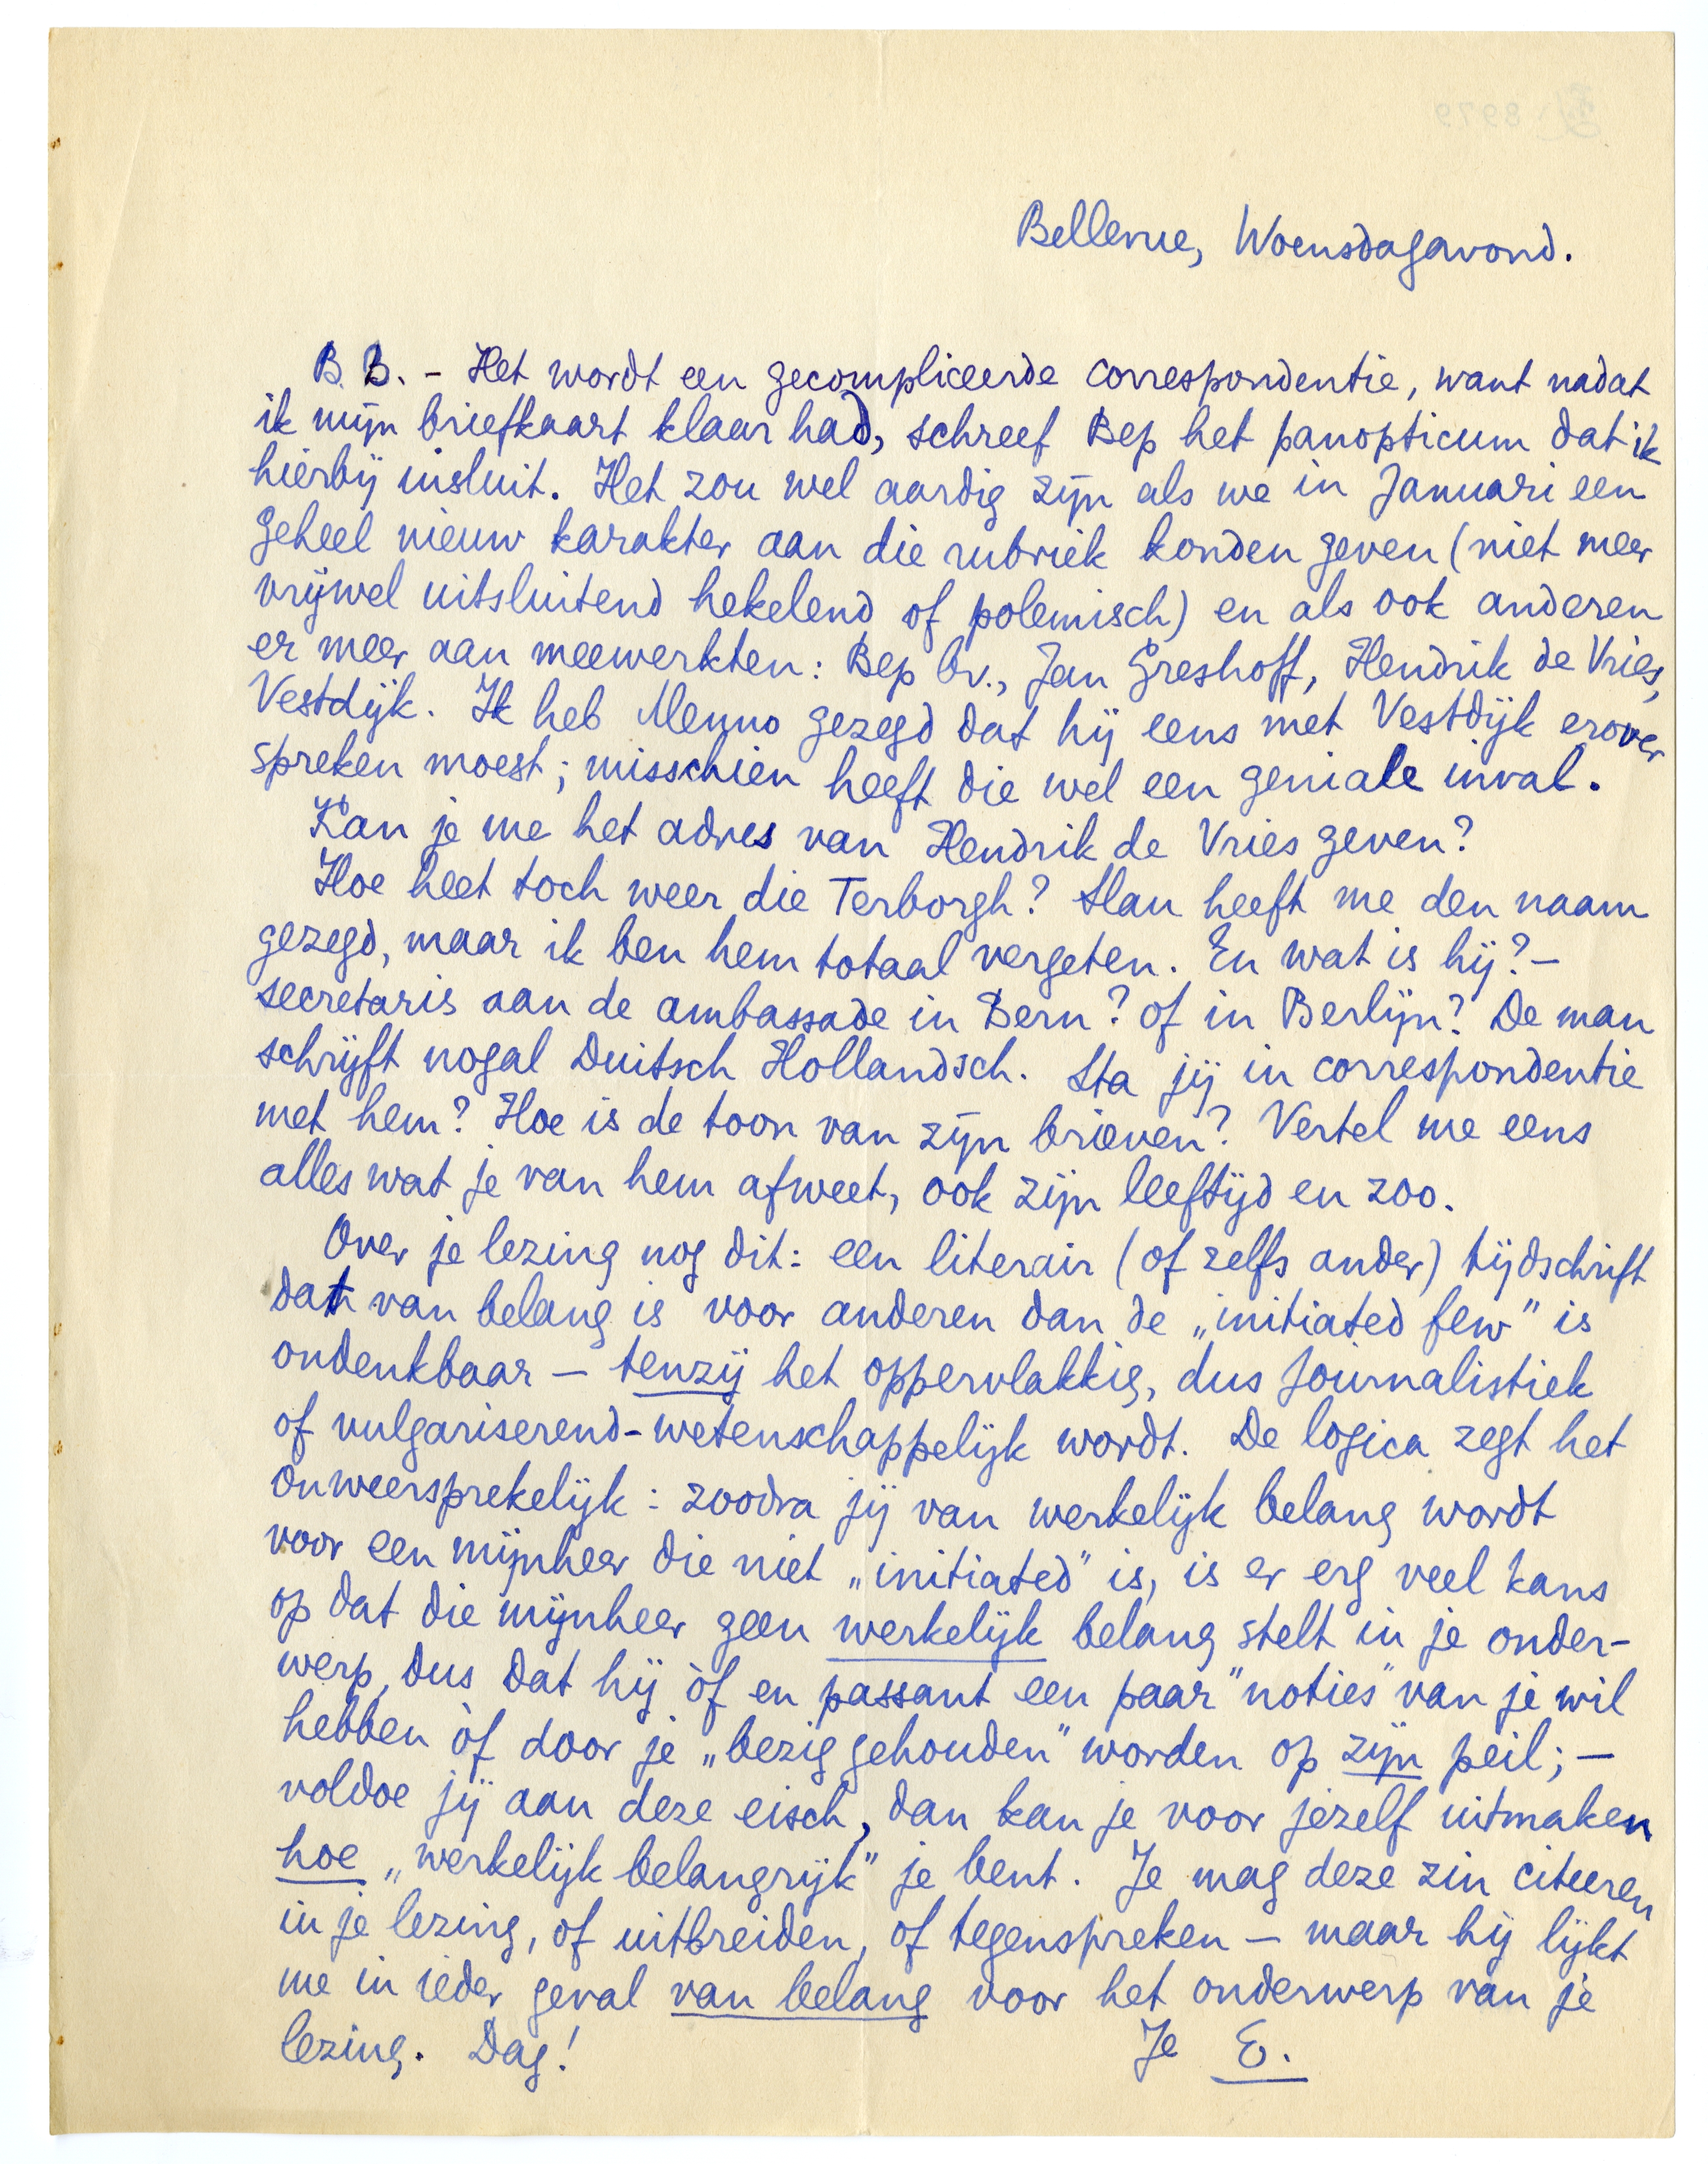 Bellevue, Woensdagavond.
B. B. - Het wordt een gecompliceerde correspondentie, want nadat
ik mijn briefkaart klaar had, schreef Bep het panopticum dat ik
hierbij insluit. Het zou wel aardig zijn als we in Januari een
geheel nieuw karakter aan die rubriek konden geven (niet meer
vrijwel uitsluitend hekelend of polemisch) en als ook anderen
er meer aan meewerkten: Bep bv., Jan Greshoff, Hendrik de Vries,
Vestdijk. Ik heb Menno gezegd dat hij eens met Vestdijk erover
spreken moest; misschien heeft die wel een geniale inval.
Kan je me het adres van Hendrik de Vries geven?
Hoe heet toch weer die Terborgh? Slau heeft me den naam
gezegd, maar ik ben hem totaal vergeten. En wat is hij? —
secretaris aan de ambassade in Bern? of in Berlijn? De man
schrijft nogal Duitsch Hollandsch. Sta jij in correspondentie
met hem? Hoe is de toon van zijn brieven? Vertel me eens
alles wat je van hem afweet, ook zijn leeftijd en zoo.
Over je lezing nog dit: een literair (of zelfs ander) tijdschrift
dat van belang is voor anderen dan de „initiated few" is
ondenkbaar — tenzij het oppervlakkig, dus journalistiek
of vulgariserend-wetenschappelijk wordt. De logica zegt het
onweersprekelijk: zoodra jij van werkelijk belang wordt
voor een mijnheer die niet „initiated" is, is er erg veel kans
op dat die mijnheer geen werkelijk belang stelt in je onder-
werp, dus dat hij òf en passant een paar "noties" van je wil
hebben òf door je „bezig gehouden" worden op zijn peil; —
voldoe jij aan deze eisch, dan kan je voor jezelf uitmaken
hoe „werkelijk belangrijk" je bent. Je mag deze zin citeeren
in je lezing, of uitbreiden, of tegenspreken — maar hij lijkt
me in ieder geval van belang voor het onderwerp van je
lezing. Dag!
Je E.